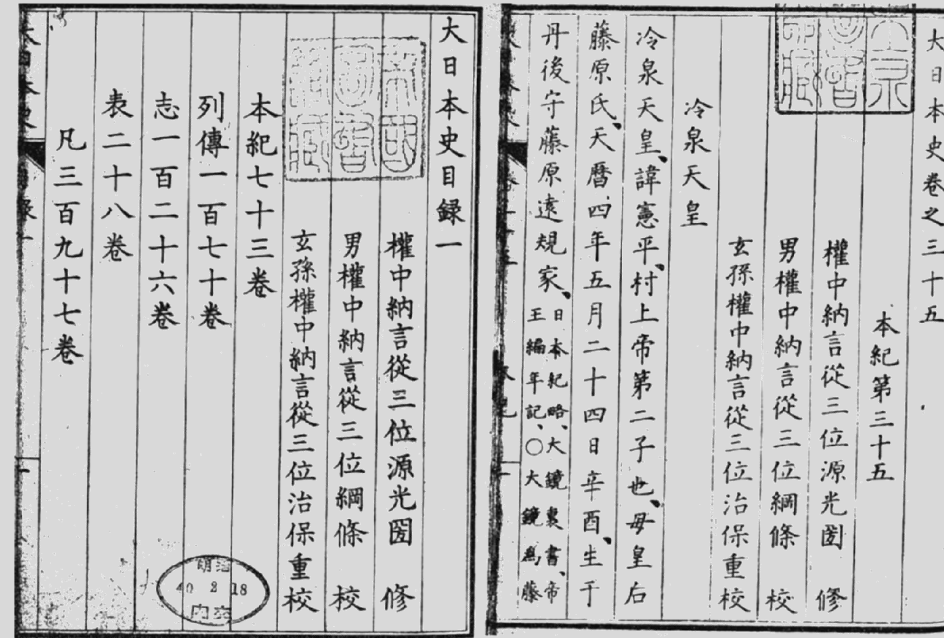 大日本史卷之三十五
本紀第三十五
權中納言從三位源光圀 修
男權中納言從三位綱條 校
玄孫權中納言從三位治保重校
冷泉天皇
冷泉天皇、諱憲平、村上帝第二子也、母皇后
藤原氏、天曆四年五月二十四日辛酉、生于
丹後守藤原遠規家、日本紀略、大鏡裏書、帝
王編年記、〇大鏡爲藤
大日本史目録一
權中納言從三位源光圀 修
男權中納言從三位綱條 校
玄孫權中納言從三位治保重校
本紀七十三卷
列傳一百七十卷
志一百二十六卷
表二十八卷
凡三百九十七卷